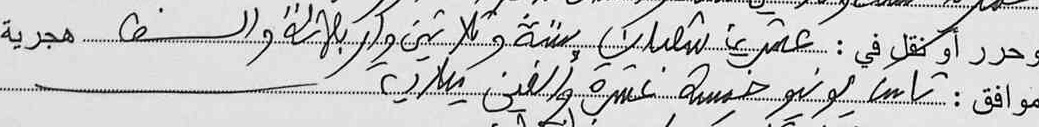 وحرر أو نقل في : عشرين شعبان ستة وثلاثين وأربعمائة وألف هجرية
موافق : ثامن يونيو خمسة عشرة وألفين ميلادي